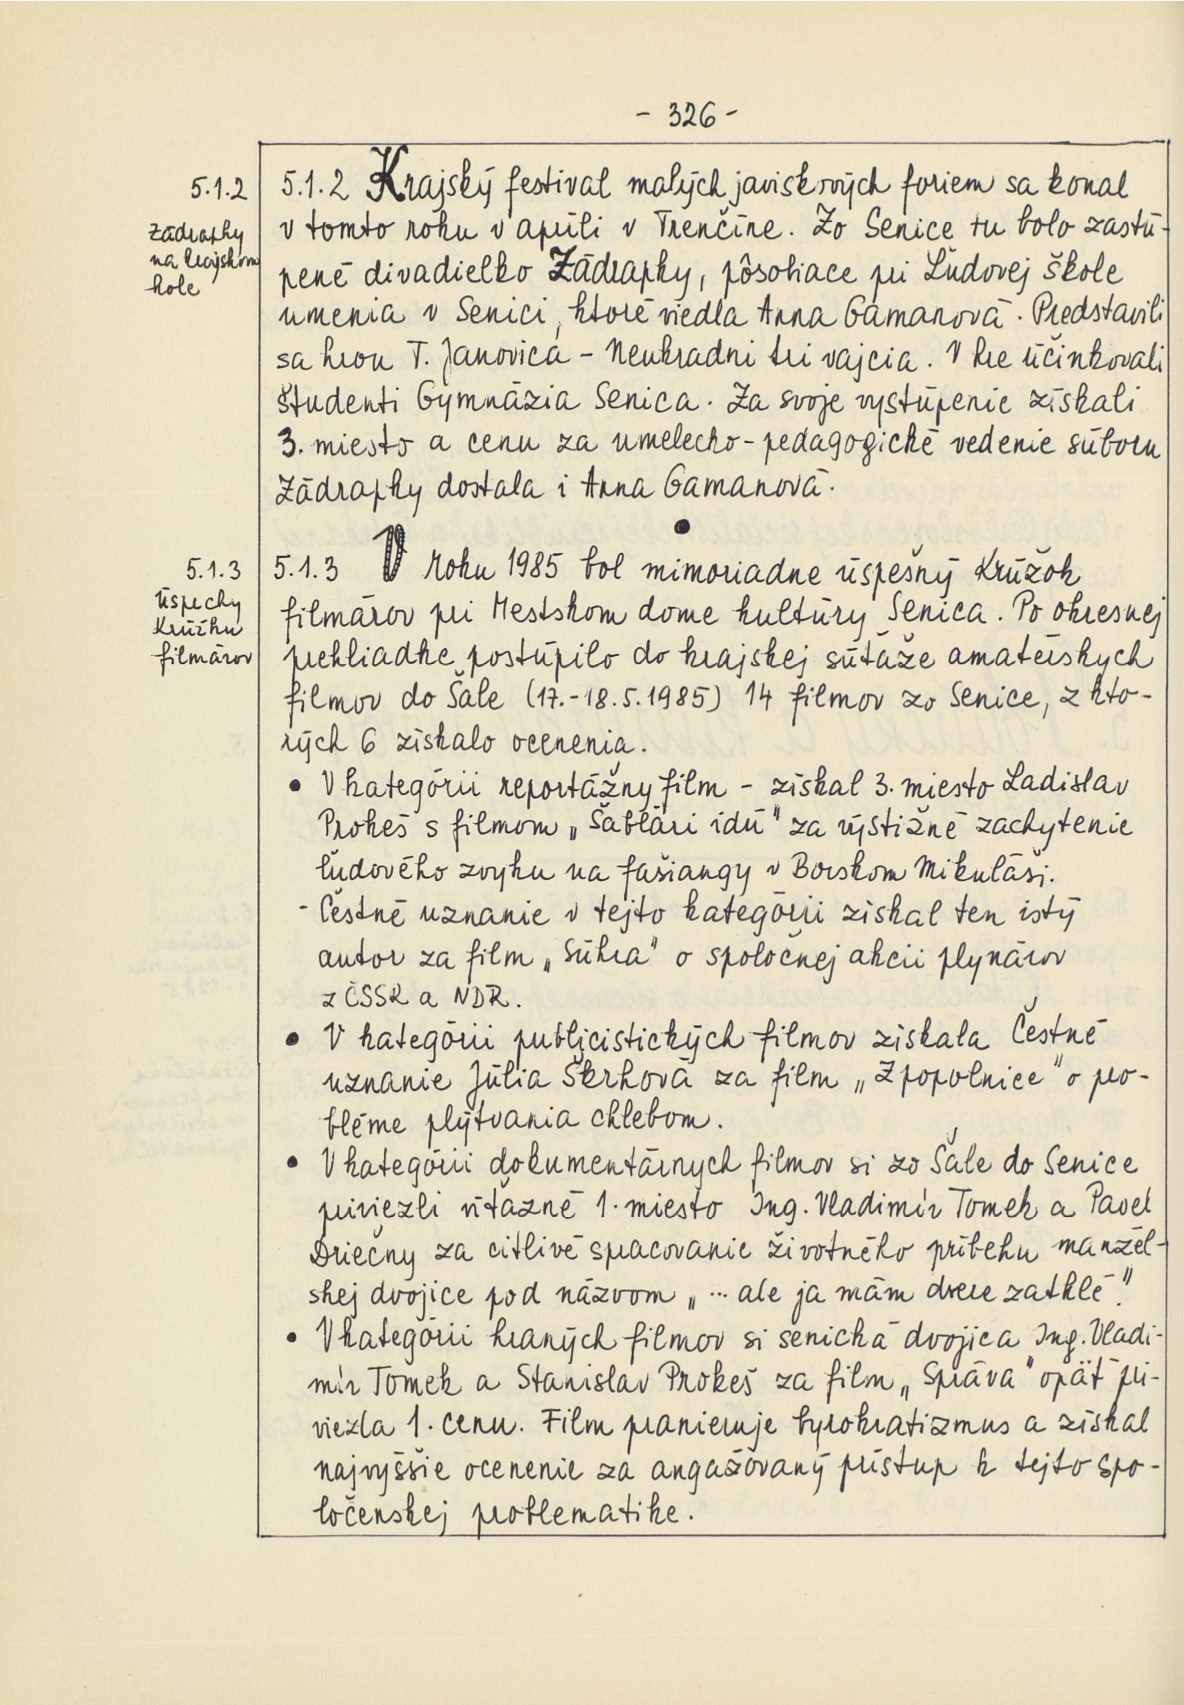 - 326 -
5.1.2
Zádrapky
na krajskom
kole
5.1.2 Krajský festival malých javiskových foriem sa konal
v tomto roku v apríli v Trenčíne. Zo Senice tu bolo zastú-
pené divadielko Zádrapky, pôsobiace pri Ľudovej škole
umenia v Senici, ktoré viedla Anna Gamanová. Predstavili
sa hrou T. Janovica - Neukradni tri vajcia. V hre účinkovali
študenti Gymnázia Senica. Za svoje vystúpenie získali
3. miesto a cenu za umelecko-pedagogické vedenie súboru
Zádrapky dostala i Anna Gamanová.
5.1.3
Úspechy
Krúžku
filmárov
5.1.3 V roku 1985 bol mimoriadne úspešný Krúžok
filmárov pri Mestskom dome kultúry Senica. Po okresnej
prehliadke postúpilo do krajskej súťaže amatérskych
filmov do Šale (17.-18.5.1985) 14 filmov zo Senice, z kto-
rých 6 získalo ocenenia.
• V kategórii reportážny film - získal 3. miesto Ladislav
Prokeš s filmom „Šabľári idú" za výstižné zachytenie
ľudového zvyku na fašiangy v Borskom Mikuláši.
- Čestné uznanie v tejto kategórii získal ten istý
autor za film „Súhra" o spoločnej akcii plynárov
z ČSSR a NDR.
• V kategórii publicistických filmov získala Čestné
uznanie Júlia Škrhová za film „Z popolnice" o pro-
bléme plýtvania chlebom.
• V kategórii dokumentárnych filmov si zo Šale do Senice
priviezli víťazné 1. miesto Ing. Vladimír Tomek a Pavel
Driečny za citlivé spracovanie životného príbehu manžel-
skej dvojice pod názvom „... ale ja mám dvere zatklé".
• V kategórii hraných filmov si senická dvojica Ing. Vladi-
mír Tomek a Stanislav Prokeš za film „Správa" opäť pri-
viezla 1. cenu. Film pranieruje byrokratizmus a získal
najvyššie ocenenie za angažovaný prístup k tejto spo-
ločenskej problematike.